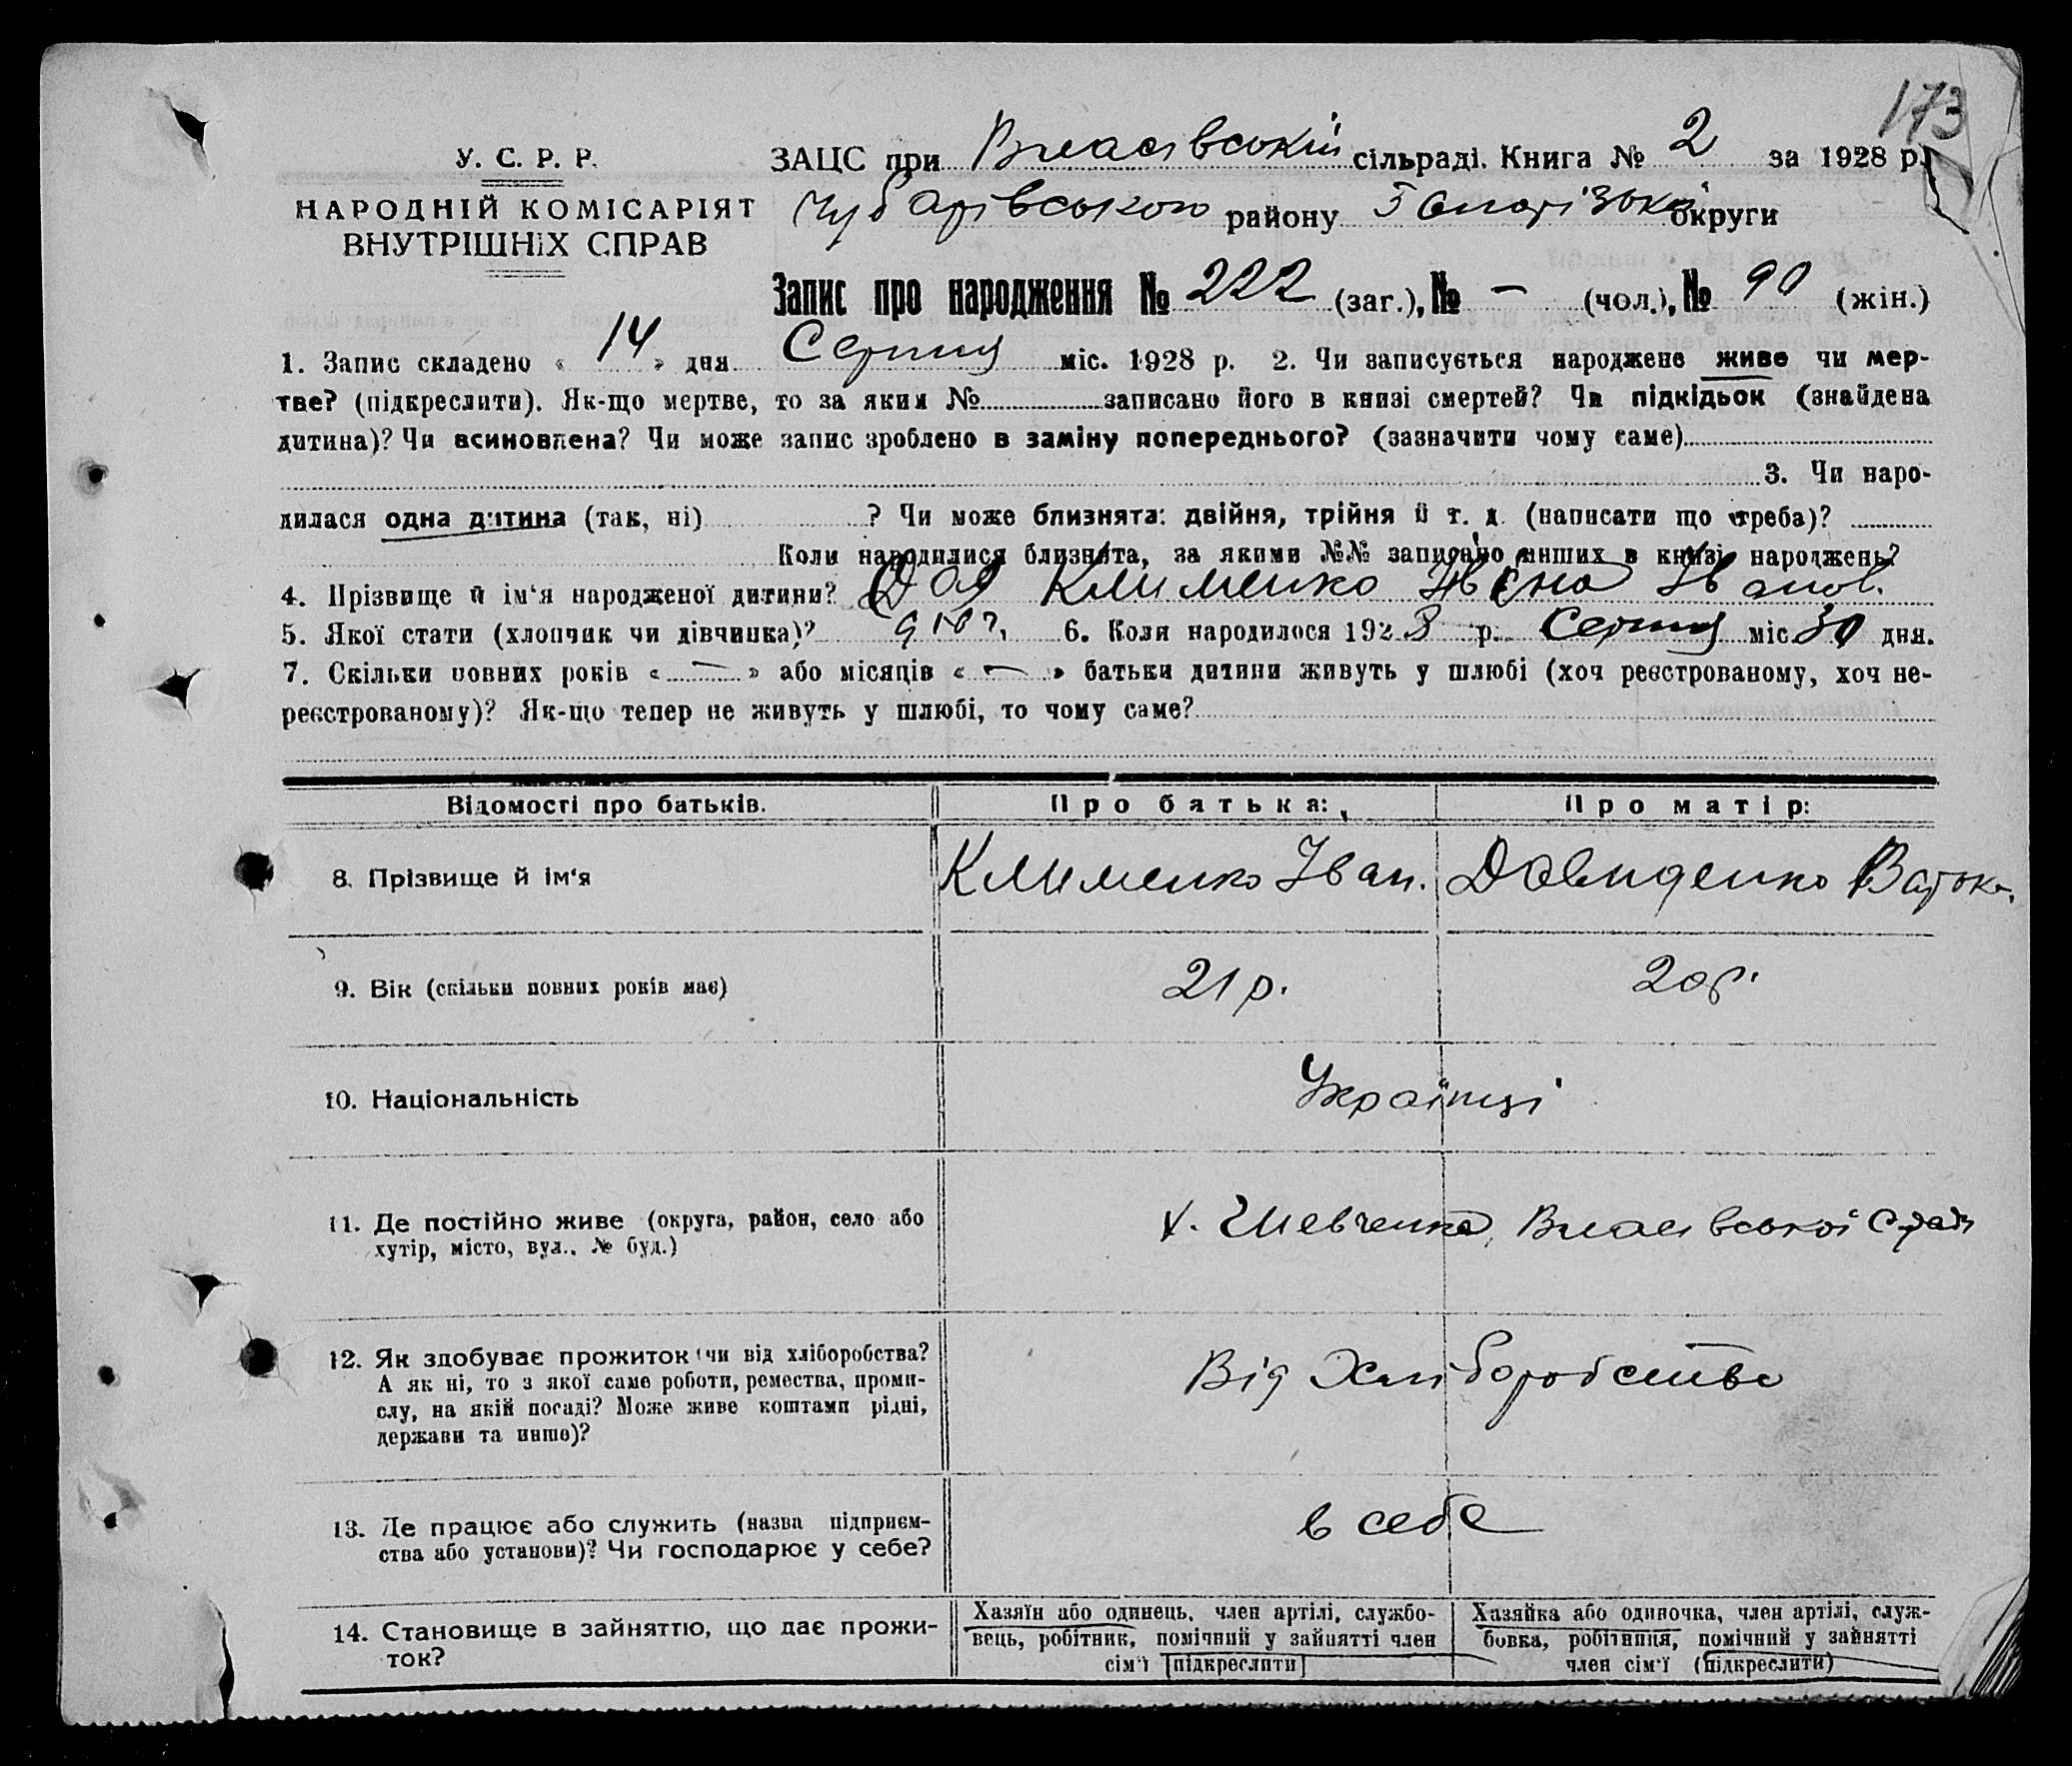 173
У. С. Р. Р.
НАРОДНІЙ КОМІСАРІЯТ
ВНУТРІШНіХ СПРАВ
ЗАЦС при Власівській сільраді. Книга № 2 за 1928 р.
Чубарівського району Запорізької округи
Запис про народження № 222 (заг.), № – (чол.), № 90 (жін.)
1. Запис складено « 14 » дня Серпня міс. 1928 р. 2. Чи записується народжене живе чи мер-
тве? (підкреслити). Як-що мертве, то за яким № записано його в книзі смертей? Чи підкідьок (знайдена
дитина)? Чи всиновлена? Чи може запис зроблено в заміну попереднього? (зазначити чому саме)
3. Чи наро-
дилася одна дитина (так, ні) ? Чи може близнята: двійня, трійня й т. д. (написати що треба)?
Коли народилися близнята, за якими №№ записано инших в книзі народжень?
4. Прізвище й ім'я народженої дитини? Клименко Іванов.
5. Якої стати (хлопчик чи дівчинка)? дівч. 6. Коли народилося 1928 р. Серпня міс. 30 дня.
7. Скільки повних років « — » або місяців « — » батьки дитини живуть у шлюбі (хоч реєстрованому, хоч не-
реєстрованому)? Як-що тепер не живуть у шлюбі, то чому саме?
Відомості про батьків. Про батька: Про матір:
8. Прізвище й ім'я Клименко Іван. Давиденко
9. Вік (скільки повних років має) 21 р. 20 р.
10. Національність Українці
11. Де постійно живе (округа, район, село або х. Шевченка, Власівської С/ради
хутір, місто, вул., № буд.)
12. Як здобуває прожиток (чи від хліборобства? Від Хліборобства
А як ні, то з якої саме роботи, ремества, проми-
слу, на якій посаді? Може живе коштами рідні,
держави та инше)?
13. Де працює або служить (назва підприєм- в себе
ства або установи)? Чи господарює у себе?
14. Становище в зайняттю, що дає прожи-
ток?
Хазяїн або одинець, член артілі, службо-
вець, робітник, помічний у зайнятті член
сім'ї [підкреслити]
Хазяйка або одиночка, член артілі, служ-
бовка, робітниця, помічний у зайнятті
член сім'ї (підкреслити)